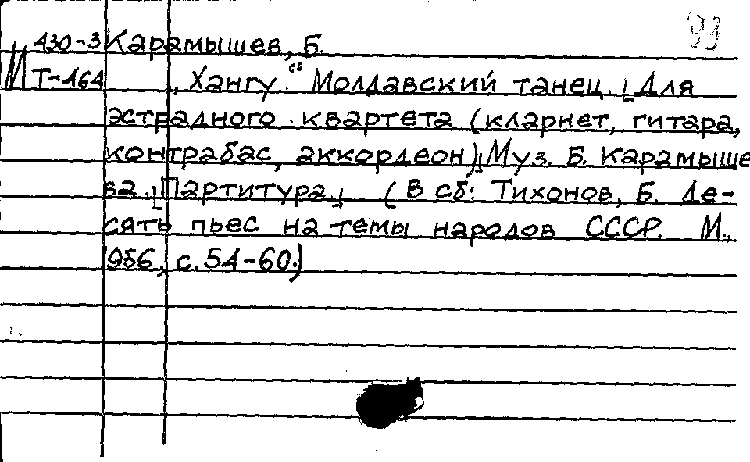 93
430-3 Карамышев, Б.
М Т-464 „Хангу“. Молдавский танец. Для
эстрадного квартета (кларнет, гитара,
контрабас, аккордеон). Муз. Б. Карамыше
ва. Партитура. (В сб: Тихонов, Б. Де-
сять пьес на темы народов СССР. М.,
1956, с. 54-60.)